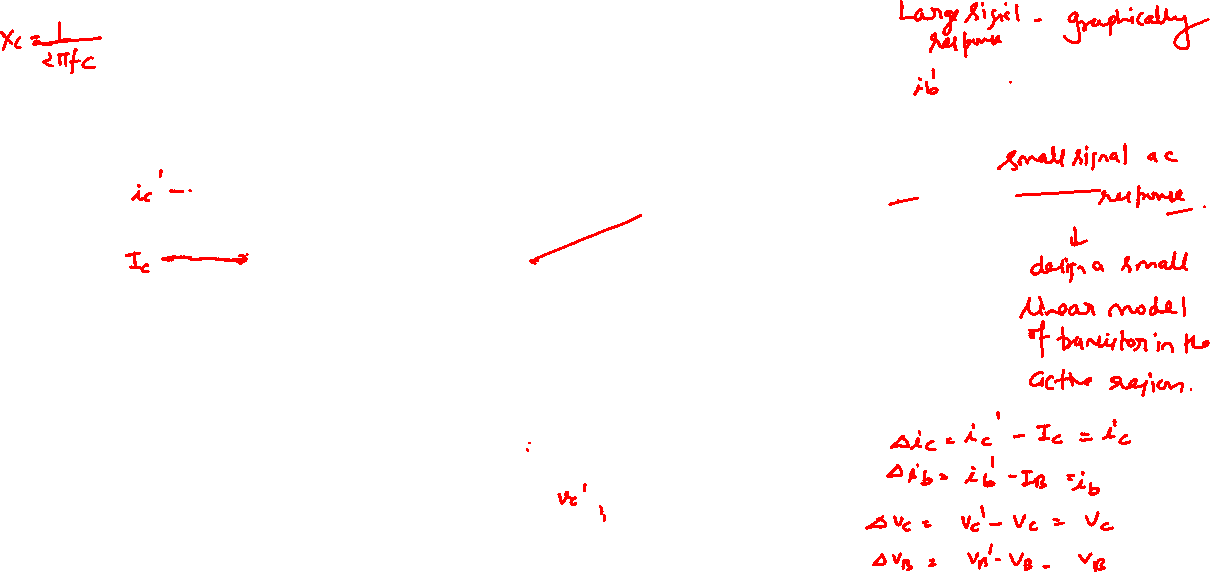 Xc = 1/2πfC
Large signal - graphically
response
ib'
small signal ac
response.
ic' -
Ic
↓
design a small
linear model
of transistor in the
active region.
Δic = ic' - Ic = ic
Δib = ib' - IB = ib
vc',
Δvc = vc' - Vc = Vc
ΔvB = VB' - VB = VB